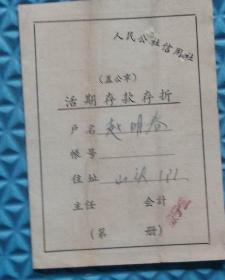 人民公社信用社
（盖公章）
活期存款存折
户名 赵明春
帐号
住址
主任 会计
（第 册）